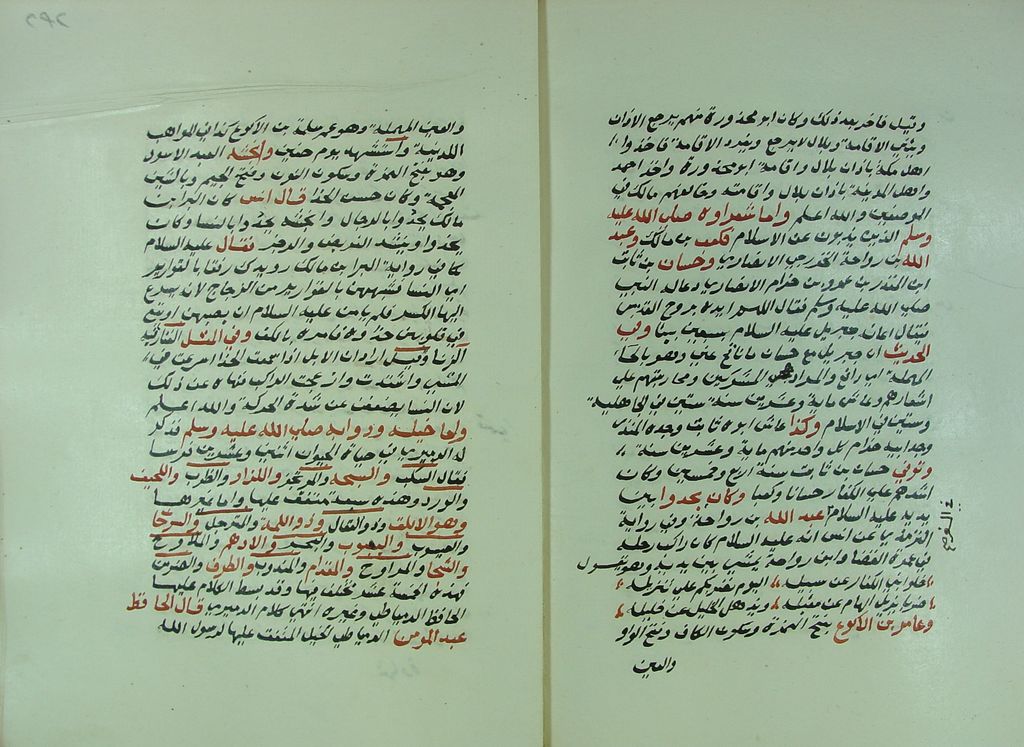 وقيل فأخر بعد ذلك وكان ابو محذورة منهم يرجع الاذان
ويثني الاقامة وبلال لا يرجع ويفرد الاقامة فاخذوا
اهل مكة باذان بلال واقامة ابي محذورة واخذ احمد
واهل المدينة باذان بلال واقامته وخالفهم مالك في
الموضعين والله اعلم واما شعراوه صلى الله عليه
وسلم الذين يذبون عن الاسلام فكعب بن مالك وعبد
الله بن رواحة الخزرجي الانصاري وحسان بن ثابت
ابن المنذر بن عمرو بن حرام الانصاري دعا له النبي
صلى الله عليه وسلم فقال اللهم ايده بروح القدس
فيقال اعانه جبريل عليه السلام بسبعين بيتا وفي
الحديث ان جبريل مع حسان ما نافح عني وهو بالحاء
المهملة اي دافع والمراد هجو المشركين ومجاوبتهم على
اشعارهم وعاش ماية وعشرين سنة ستين في الجاهلية
وستين في الاسلام وكذا عاش ابوه ثابت وجده المنذر
وجد ابيه حرام كل واحد منهم ماية وعشرين سنة
وتوفي حسان بن ثابت سنة اربع وخمسين وكان
اشدهم على الكفار حسانا وكعبا وكان يحدوا بين
يديه عليه السلام عبد الله بن رواحة وفي رواية
الترمذي عن انس انه عليه السلام دخل مكة
في عمرة القضا وابن رواحة يمشي بين يديه وهو يقول
خلوا بني الكفار عن سبيله اليوم نضربكم على تنزيله
ضربا يزيل الهام عن مقيله ويذهل الخليل عن خليله
وعامر بن الاكوع بفتح الهمزة وسكون الكاف وفتح الواو
والعين
والعين المهملة وهو عم سلمة بن الاكوع كذا في المواهب
اللدنية واستشهد يوم خيبر وانجشة العبد الاسود
وهو بفتح الهمزة وسكون النون وفتح الجيم وبالشين
المعجمة وكان حسن الحدا قال انس كان البرا بن
مالك يحدوا بالرجال وانجشة يحدوا بالنسا وكان
يحدوا وينشد القريض والرجز فقال عليه السلام
كما في رواية البرا بن مالك رويدك رفقا بالقوارير
اي النسا فشبههن بالقوارير من الزجاج لانه يسرع
اليها الكسر فلم يامن عليه السلام ان يصيبهن او يقع
في قلوبهن حدوه فامره بالكف وفي المثل الغنا رقية
الزنا وقيل اراد ان الابل اذا سمعت الحدا اسرعت في
المشي واشتدت وازعجت الراكب فنهاه عن ذلك
لان النسا يضعفن عن شدة الحركة والله اعلم
واما خيله ودوابه صلى الله عليه وسلم فذكر
له الدميري في حياة الحيوان اثنين وعشرين فرسا
فقال السكب والسبحة والمرتجز واللزاز والظرب واللحيف
والورد وهذه سبعة متفق عليها واما غيرها
وهو الابلق وذو العقال وذو اللمة والمرتجل والسرحان
واليعسوب واليعبوب والبحر والادهم والملاوح
والشحا والمراوح والمقدام والمندوب والطرف والضرس
فهذه الخمسة عشر مختلف فيها وقد بسط الكلام عليها
الحافظ الدمياطي وغيره انتهى كلام الدميري قال الحافظ
عبد المومن الدمياطي الخيل المتفق عليها لرسول الله